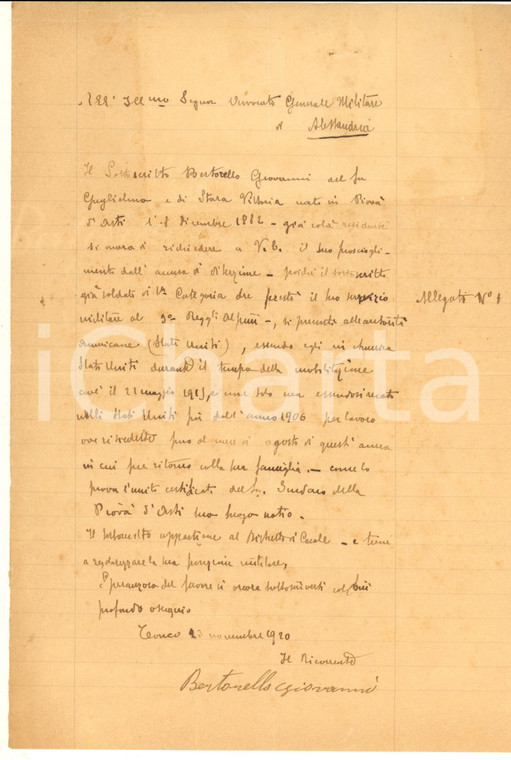 All' Ill mo Signor Avvocato Generale Militare
di Alessandria
Il Sottoscritto Bertorello Giovanni del fu
Guglielmo e di Stara Vittoria nato in Piovà
d'Asti l' 8 dicembre 1882 - già colà residente
si onora di richiedere a V.E. il suo prosciogli-
mento dall' accusa di diserzione - poiché il sottoscritto
già soldato di 1a Categoria che prestò il suo servizio
militare al 3o Regg Alpini -, si presentò alle autorità
Americane (Stati Uniti), essendo egli in America
Stati Uniti durante il tempo della mobilitazione
cioè il 21 maggio 1915, e non solo ma essendosi recato
negli Stati Uniti fin dall' anno 1906 per lavoro
ove risiedette fino al mese di agosto di quest' anno
in cui fece ritorno colla sua famiglia. - come lo
prova l'unito certificato del Sig. Sindaco della
Piovà d'Asti suo luogo natio.
Il sottoscritto appartiene al Distretto di Casale - e tiene
a regolarizzare la sua posizione militare,
Speranzoso del favore si onora sottoscriversi col più
profondo ossequio
Tonco 23 novembre 1920
Il Ricorrente
Bertorello Giovanni
Allegato No 1
iCharta